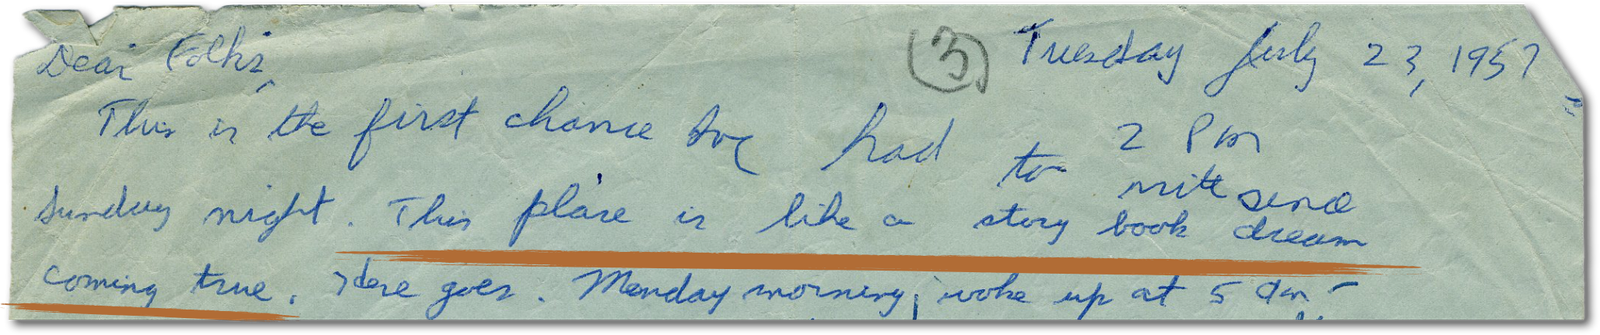 Dear Folks, (3) Tuesday July 23, 1957
2 PM
This is the first chance Ive had to write since
Sunday night. This place is like a story book dream
coming true. Here goes. Monday morning, woke up at 5 am -